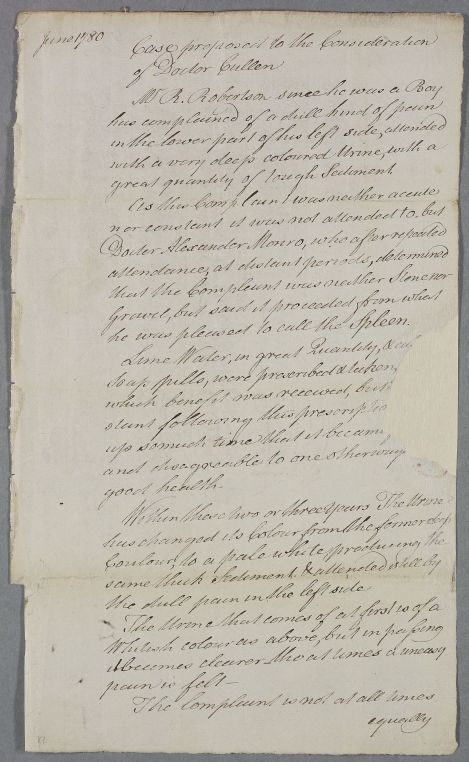 June 1780
Case, proposed to the Consideration
of Doctor Cullen
Mr R. Robertson since he was a Boy
has complained of a dull kind of pain
in the lower part of his left side, attended
with a very deep coloured Urine, with a
great quantity of tough Sediment.
As this Complaint was neither accute
nor constant it was not attended to. but
Doctor Alexander Monro, who after repeated
attendance, at distant periods, determined
that the Compleant was neither Stone nor
Gravel, but said it proceeded from what
he was pleased to call the Spleen.
Lime Water, in great Quantity, &
Soap pills, were prescribed & taken
which benefit was received, but
stant following this prescriptio
up so much time that it becam
and disagreable to one otherways
good health.
Within these two or three years The Urine
has changed its Colour from the former deep
Coulour, to a pale white producing the
same thick Sediment, & attended still by
the dull pain in the left side
The Urine that comes of at first is of a
Whitish colour as above, but in passing
it becomes clearer tho at times a uneasy
pain is felt —
The compleant is not at all times
equally